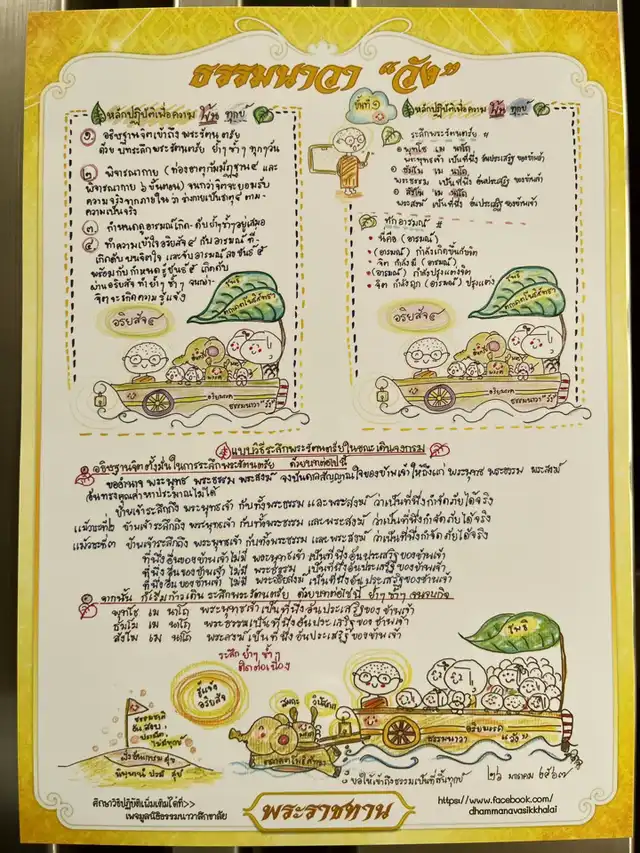 ธรรมนาวา "วัง"
หลักปฏิบัติเพื่อความ พ้น ทุกข์
๑. อธิษฐานจิตเข้าถึง พระรัตนตรัย
ด้วย บทระลึกพระรัตนตรัย ย้ำๆซ้ำๆ ทุกๆวัน
๒ พิจารณากาย (ท่องธาตุกัมมัฏฐาน ๔ และ
พิจารณากาย ๖ ขั้นตอน) จนกว่าจิตจะยอมรับ
ความจริงจากภายในว่า ร่างกายเป็นธาตุ ๔ ตาม
ความเป็นจริง
๓ กำหนดดูอารมณ์เกิด-ดับ ย้ำๆซ้ำๆอยู่เสมอ
๔ ทำความเข้าใจอริยสัจ ๔ กับอารมณ์ที่
เกิดดับบนจิตใจ และจับอารมณ์ลงขันธ์ ๕
พร้อมกับกำหนดรู้ขันธ์ ๕ เกิดดับ
ผ่านอริยสัจ ทำย้ำๆ ซ้ำๆ จนกว่า
จิตจะเกิดความรู้แจ้ง
อริยสัจ ๔
โพธิ
ธรรมนาวา "วัง"
วันที่ ๑
หลักปฏิบัติเพื่อความ พ้น ทุกข์
ระลึกพระรัตนตรัย
๑ พุทโธ เม นาโถ
พระพุทธเจ้า เป็นที่พึ่ง อันประเสริฐ ของข้าเจ้า
๒ ธัมโม เม นาโถ
พระธรรม เป็นที่พึ่ง อันประเสริฐ ของข้าเจ้า
๓ สังโฆ เม นาโถ
พระสงฆ์ เป็นที่พึ่ง อันประเสริฐ ของข้าเจ้า
ทักอารมณ์
นี่คือ (อารมณ์)
(อารมณ์) กำลังเกิดขึ้นกับจิต
จิต กำลังมี (อารมณ์)
(อารมณ์) กำลังปรุงแต่งจิต
จิต กำลังถูก (อารมณ์) ปรุงแต่ง
อริยสัจ ๔
โพธิ
ธรรมนาวา "วัง"
แบบวิธีระลึกพระรัตนตรัยในขณะเดินจงกรม
๑ อธิษฐานจิตตั้งมั่นในการระลึกพระรัตนตรัย ด้วยบทต่อไปนี้
ขออำนาจ พระพุทธ พระธรรม พระสงฆ์ จงบันดลสัญญาณใจของข้าพเจ้า ให้ถึงแก่ พระพุทธ พระธรรม พระสงฆ์
อันทรงคุณค่าหาประมาณไม่ได้
ข้าพเจ้าระลึกถึง พระพุทธเจ้า กับทั้งพระธรรม และพระสงฆ์ ว่าเป็นที่พึ่งกำจัดภัยได้จริง
แม้วาระที่๒ ข้าพเจ้าระลึกถึง พระพุทธเจ้า กับทั้งพระธรรม และพระสงฆ์ ว่าเป็นที่พึ่งกำจัดภัยได้จริง
แม้วาระที่๓ ข้าพเจ้าระลึกถึง พระพุทธเจ้า กับทั้งพระธรรม และพระสงฆ์ ว่าเป็นที่พึ่งกำจัดภัยได้จริง
ที่พึ่งอื่นของข้าพเจ้าไม่มี พระพุทธเจ้า เป็นที่พึ่งอันประเสริฐของข้าพเจ้า
ที่พึ่งอื่นของข้าพเจ้าไม่มี พระธรรม เป็นที่พึ่งอันประเสริฐของข้าพเจ้า
ที่พึ่งอื่นของข้าพเจ้าไม่มี พระสงฆ์ เป็นที่พึ่งอันประเสริฐของข้าพเจ้า
๒ จากนั้น ก็เริ่มก้าวเดิน ระลึกพระรัตนตรัย ด้วยบทต่อไปนี้ ย้ำๆ ซ้ำๆ
พุทโธ เม นาโถ พระพุทธเจ้าเป็นที่พึ่งอันประเสริฐของข้าพเจ้า
ธัมโม เม นาโถ พระธรรมเป็นที่พึ่งอันประเสริฐของข้าพเจ้า
สังโฆ เม นาโถ พระสงฆ์เป็นที่พึ่งอันประเสริฐของข้าพเจ้า
ระลึก ย้ำๆ ซ้ำๆ
ติดต่อเนื่อง
รู้แจ้ง
อริยสัจ
สมถะ
วิปัสสนา
โพธิ
ธรรมนาวา "วัง"
อริยมรรค
ขอให้เข้าถึงธรรมเป็นที่สิ้นทุกข์
๒๖ มกราคม ๒๕๖๗
ศึกษาวิธีปฏิบัติเพิ่มเติมได้ที่>>
เพจมูลนิธิธรรมนาวาสิกขาลัย
พระราชทาน
https://www.facebook.com/
dhammanavasikkhalai